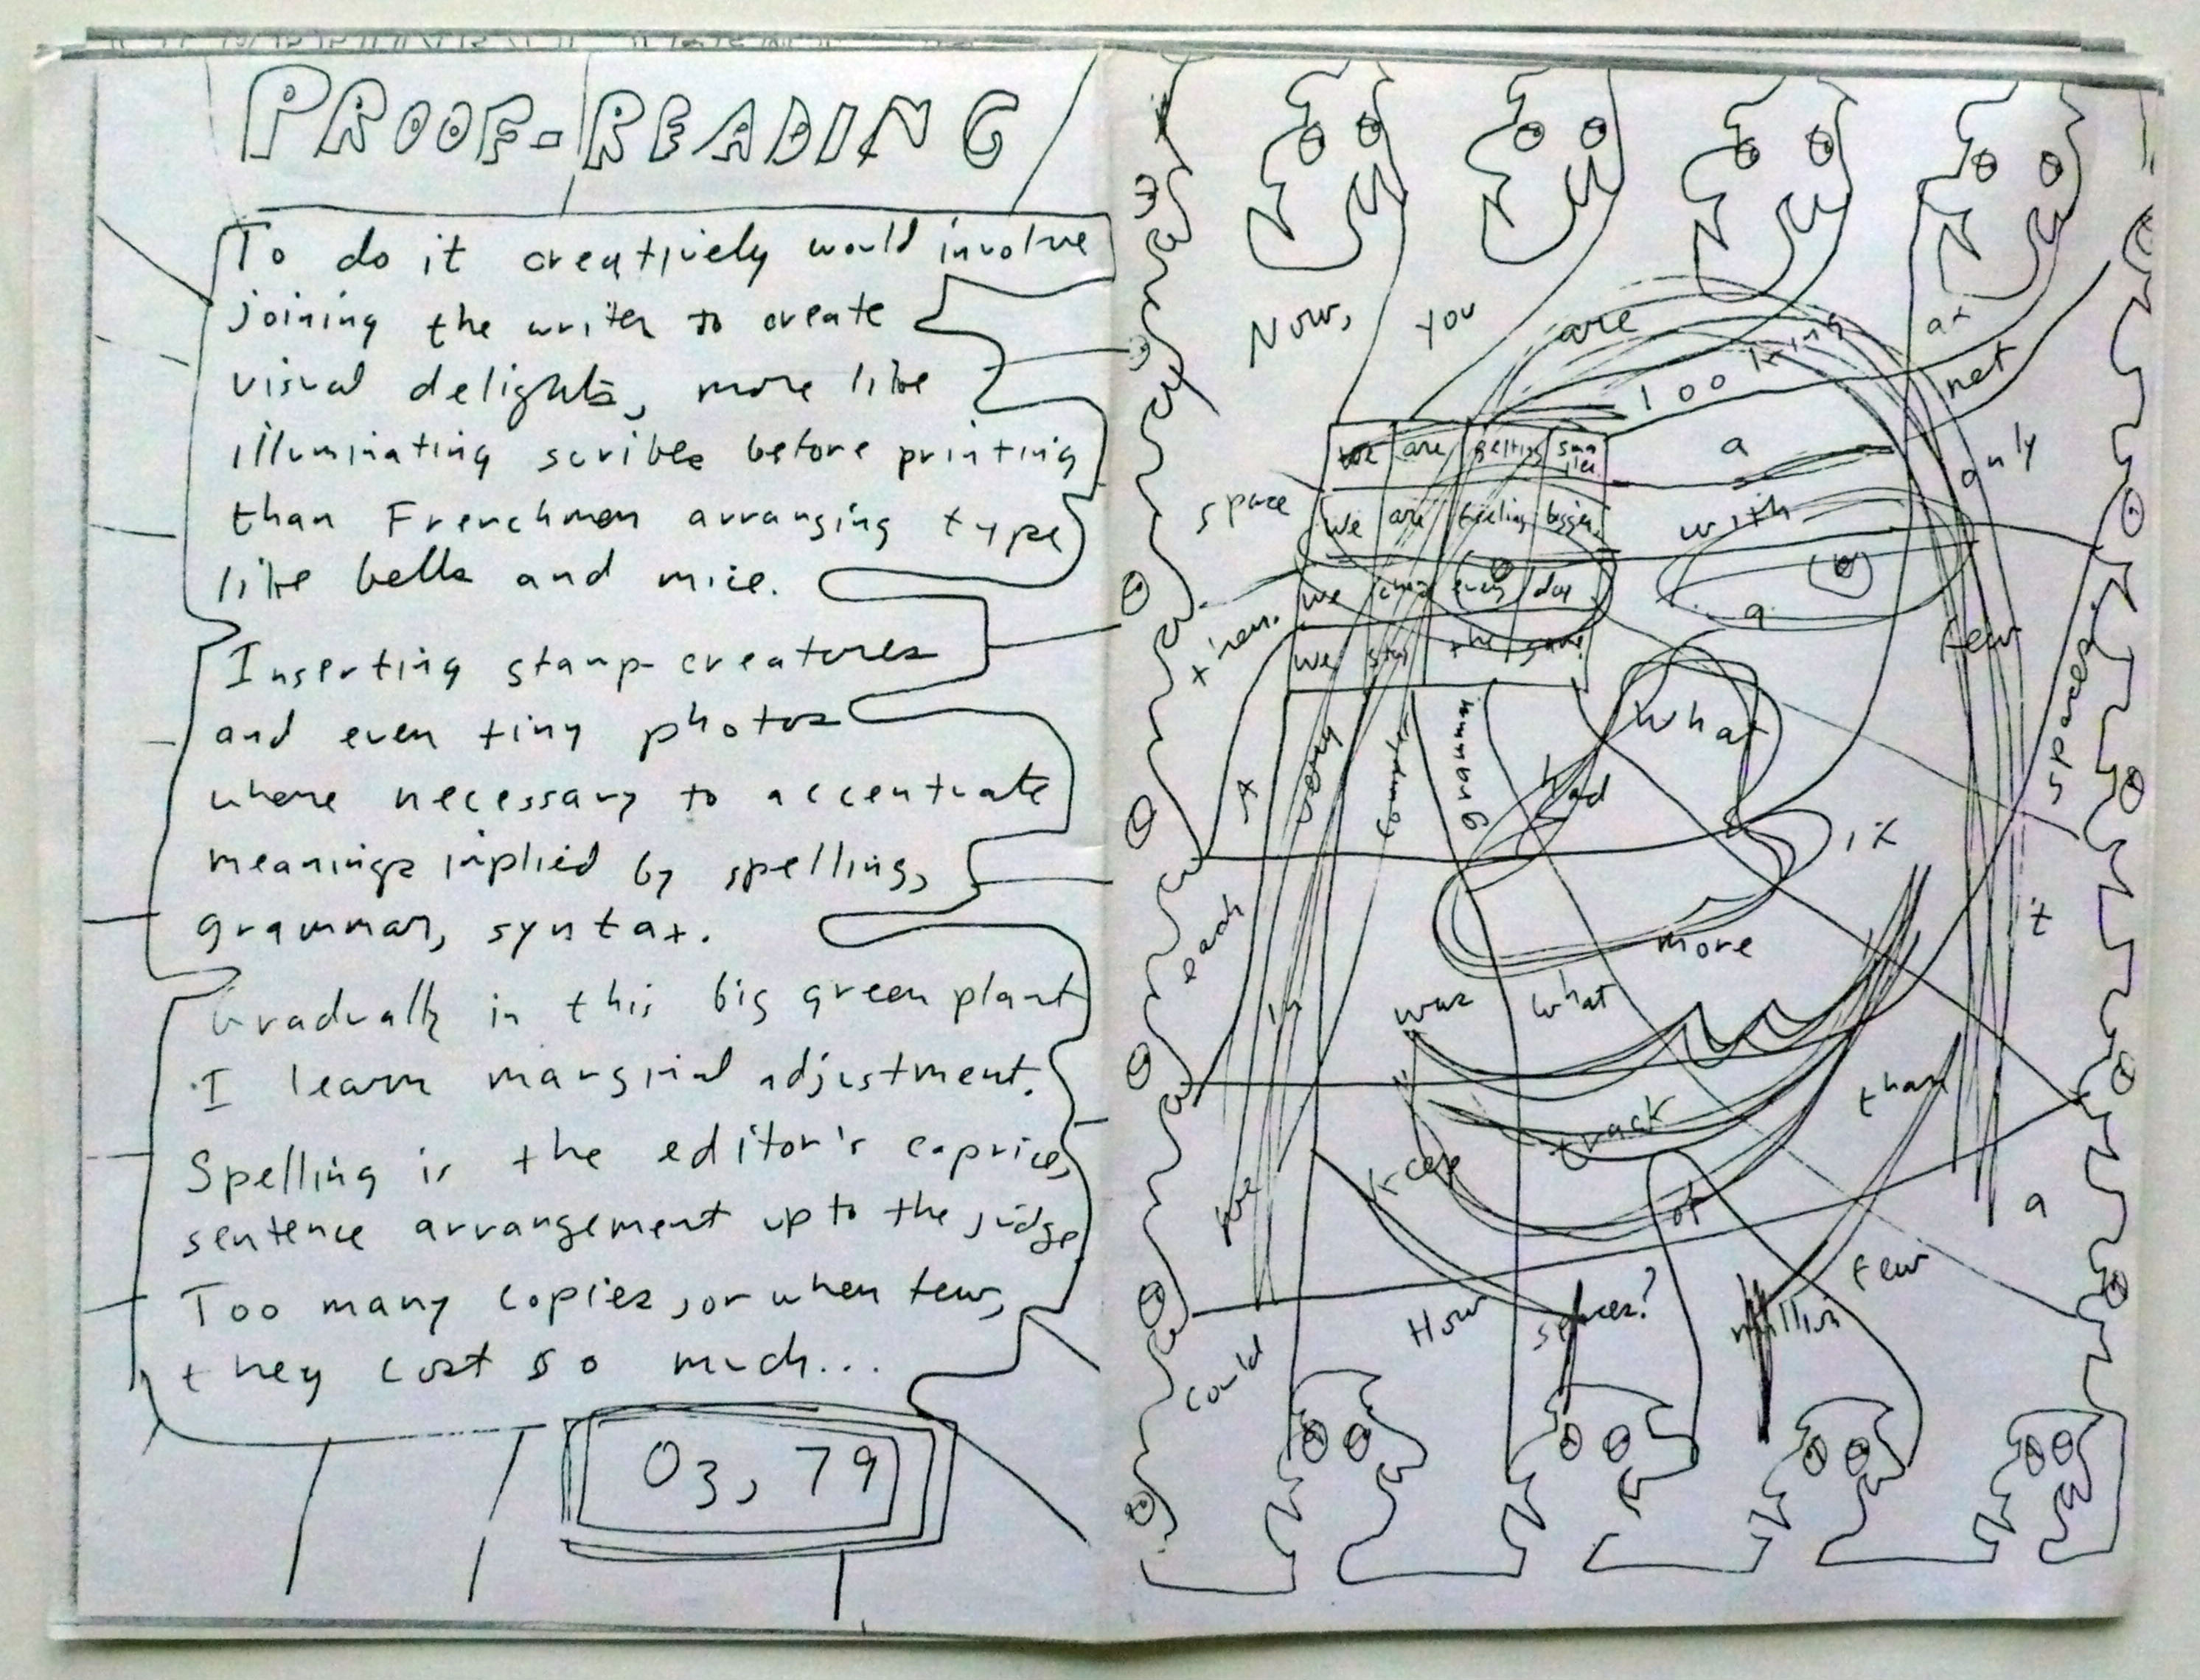 PROOF-READING
To do it creatively would involve
joining the writer to create
visual delights, more like
illuminating scribes before printing
than Frenchmen arranging type
like bells and mice.
Inserting stamp creatures
and even tiny photos
where necessary to accentuate
meanings implied by spelling,
grammar, syntax.
Gradually in this big green plant
I learn marginal adjustment.
Spelling is the editor's caprice,
sentence arrangement up to the judge
Too many copies, or when few,
they cost so much...
03,79
Now, you are looking at
a net
with only
a few
spaces
what
had
it
it
more
than
a
few
million
spaces?
How
could
we
keep
track
of
what
was
in
each
space
A very
number
We are getting smaller.
We are feeling bigger.
We every day
We stay the same.